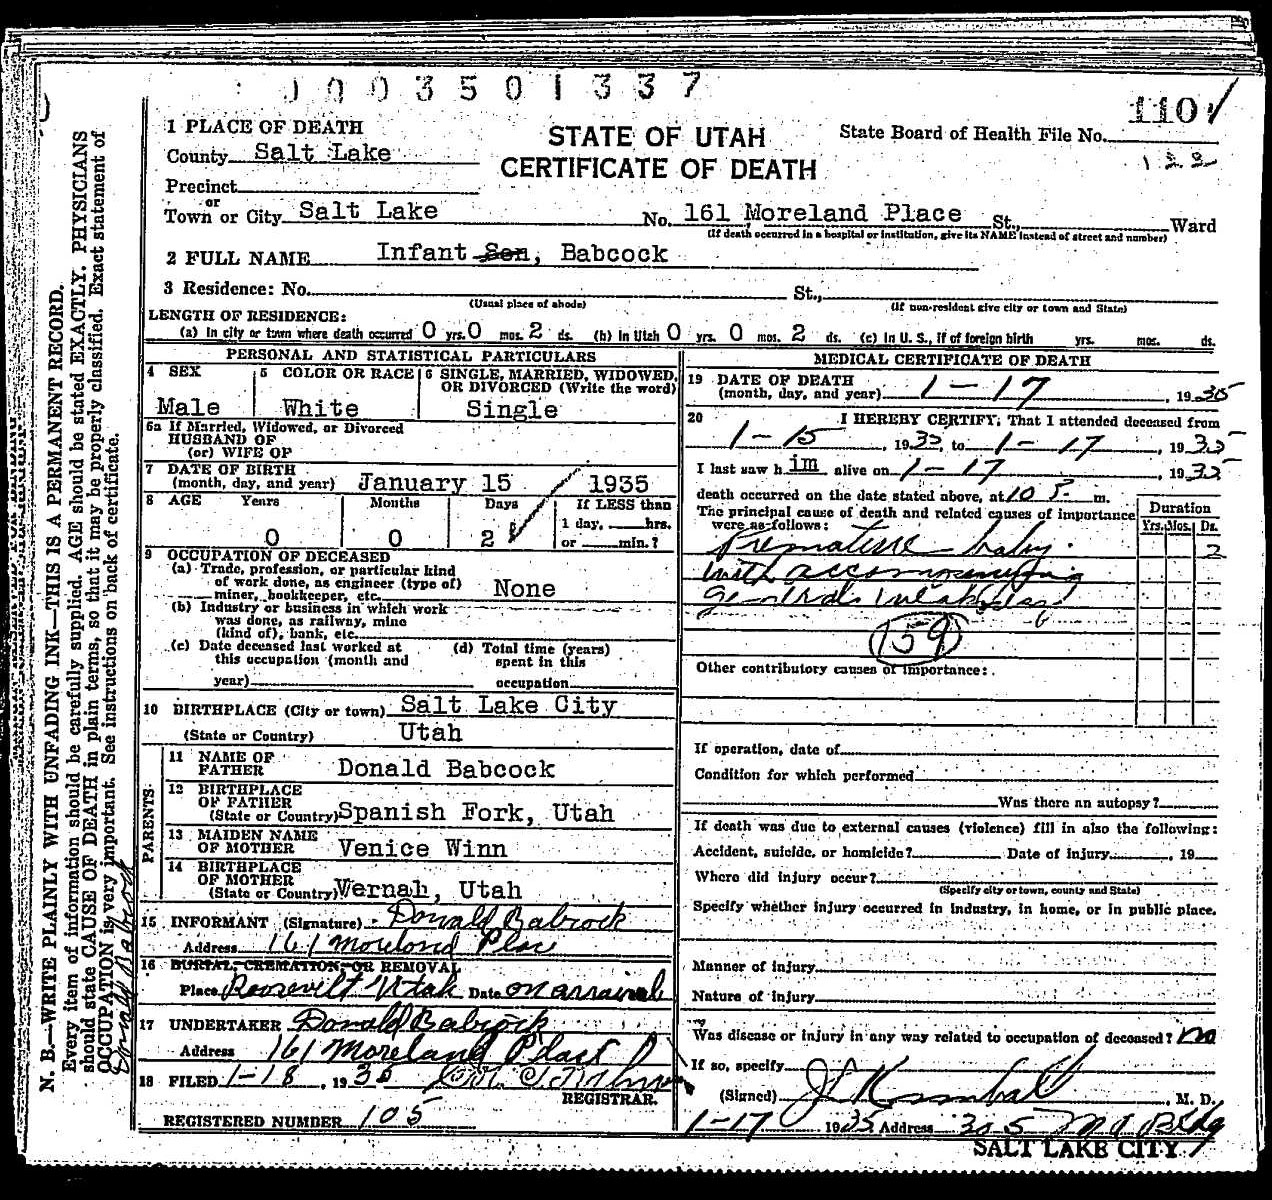 J003501337
110
STATE OF UTAH
CERTIFICATE OF DEATH
State Board of Health File No.
122
1 PLACE OF DEATH
County Salt Lake
Precinct
or
Town or City Salt Lake No. 161 Moreland Place St., Ward
(If death occurred in a hospital or institution, give its NAME instead of street and number)
2 FULL NAME Infant Son, Babcock
3 Residence: No. St.,
(Usual place of abode) (If non-resident give city or town and State)
LENGTH OF RESIDENCE:
(a) In city or town where death occurred 0 yrs. 0 mos. 2 ds. (b) In Utah 0 yrs. 0 mos. 2 ds. (c) In U. S., if of foreign birth yrs. mos. ds.
PERSONAL AND STATISTICAL PARTICULARS
4 SEX
Male
5 COLOR OR RACE
White
6 SINGLE, MARRIED, WIDOWED,
OR DIVORCED (Write the word)
Single
6a If Married, Widowed, or Divorced
HUSBAND OF
(or) WIFE OF
7 DATE OF BIRTH
(month, day, and year) January 15 1935
8 AGE Years Months Days If LESS than
1 day, hrs.
0 0 2 or min.?
9 OCCUPATION OF DECEASED
(a) Trade, profession, or particular kind
of work done, as engineer (type of)
miner, bookkeeper, etc. None
(b) Industry or business in which work
was done, as railway, mine
(kind of), bank, etc.
(c) Date deceased last worked at
this occupation (month and
year)
(d) Total time (years)
spent in this
occupation
10 BIRTHPLACE (City or town) Salt Lake City
(State or Country) Utah
PARENTS
11 NAME OF
FATHER Donald Babcock
12 BIRTHPLACE
OF FATHER
(State or Country) Spanish Fork, Utah
13 MAIDEN NAME
OF MOTHER Venice Winn
14 BIRTHPLACE
OF MOTHER
(State or Country) Vernah, Utah
15 INFORMANT (Signature) Donald Babcock
Address 161 Moreland Place
16 BURIAL, CREMATION, OR REMOVAL
Place Roosevelt Utah Date on arraival
17 UNDERTAKER Donald Babcock
Address 161 Moreland Place
18 FILED 1-18, 1935
REGISTRAR.
REGISTERED NUMBER 105
MEDICAL CERTIFICATE OF DEATH
19 DATE OF DEATH
(month, day, and year) 1-17, 1935
20 I HEREBY CERTIFY, That I attended deceased from
1-15, 1935, to 1-17, 1935
I last saw him alive on 1-17, 1935
death occurred on the date stated above, at 10 P. m.
The principal cause of death and related causes of importance
were as follows:
Duration
Yrs. Mos. Ds.
Premature baby 2
with accompanying
general weakness
159
Other contributory causes of importance:
If operation, date of
Condition for which performed
Was there an autopsy?
If death was due to external causes (violence) fill in also the following:
Accident, suicide, or homicide? Date of injury, 19
Where did injury occur?
(Specify city or town, county and State)
Specify whether injury occurred in industry, in home, or in public place.
Manner of injury
Nature of injury
Was disease or injury in any way related to occupation of deceased? no
If so, specify
(Signed) J L Kimball, M. D.
1-17 1935 Address 305 Bldg
SALT LAKE CITY
N. B.—WRITE PLAINLY WITH UNFADING INK—THIS IS A PERMANENT RECORD.
Every item of information should be carefully supplied. AGE should be stated EXACTLY. PHYSICIANS
should state CAUSE OF DEATH in plain terms, so that it may be properly classified. Exact statement of
OCCUPATION is very important. See instructions on back of certificate.
Donald Babcock